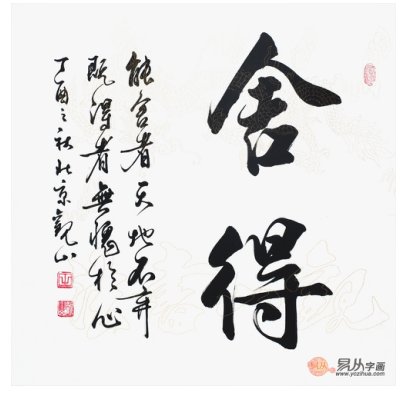 舍得
能舍者天地不弃
既得者無愧於心
丁酉之秋北京觀山
易从字画
www.yczihua.com